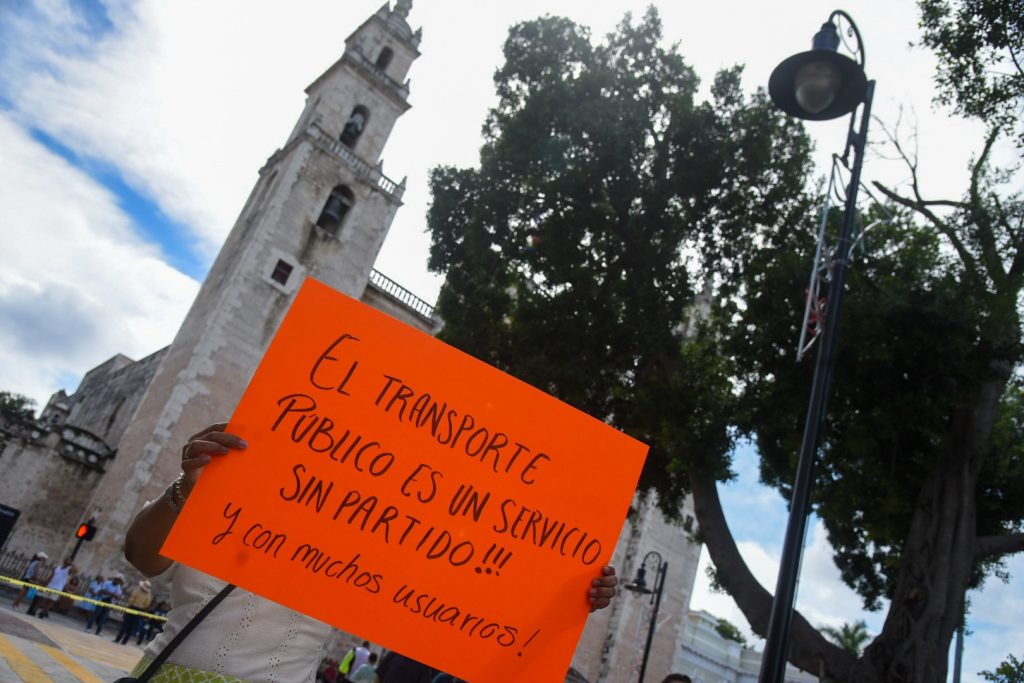 EL TRANSPORTE
PÚBLICO ES UN SERVICIO
SIN PARTIDO!!!
Y con muchos usuarios!